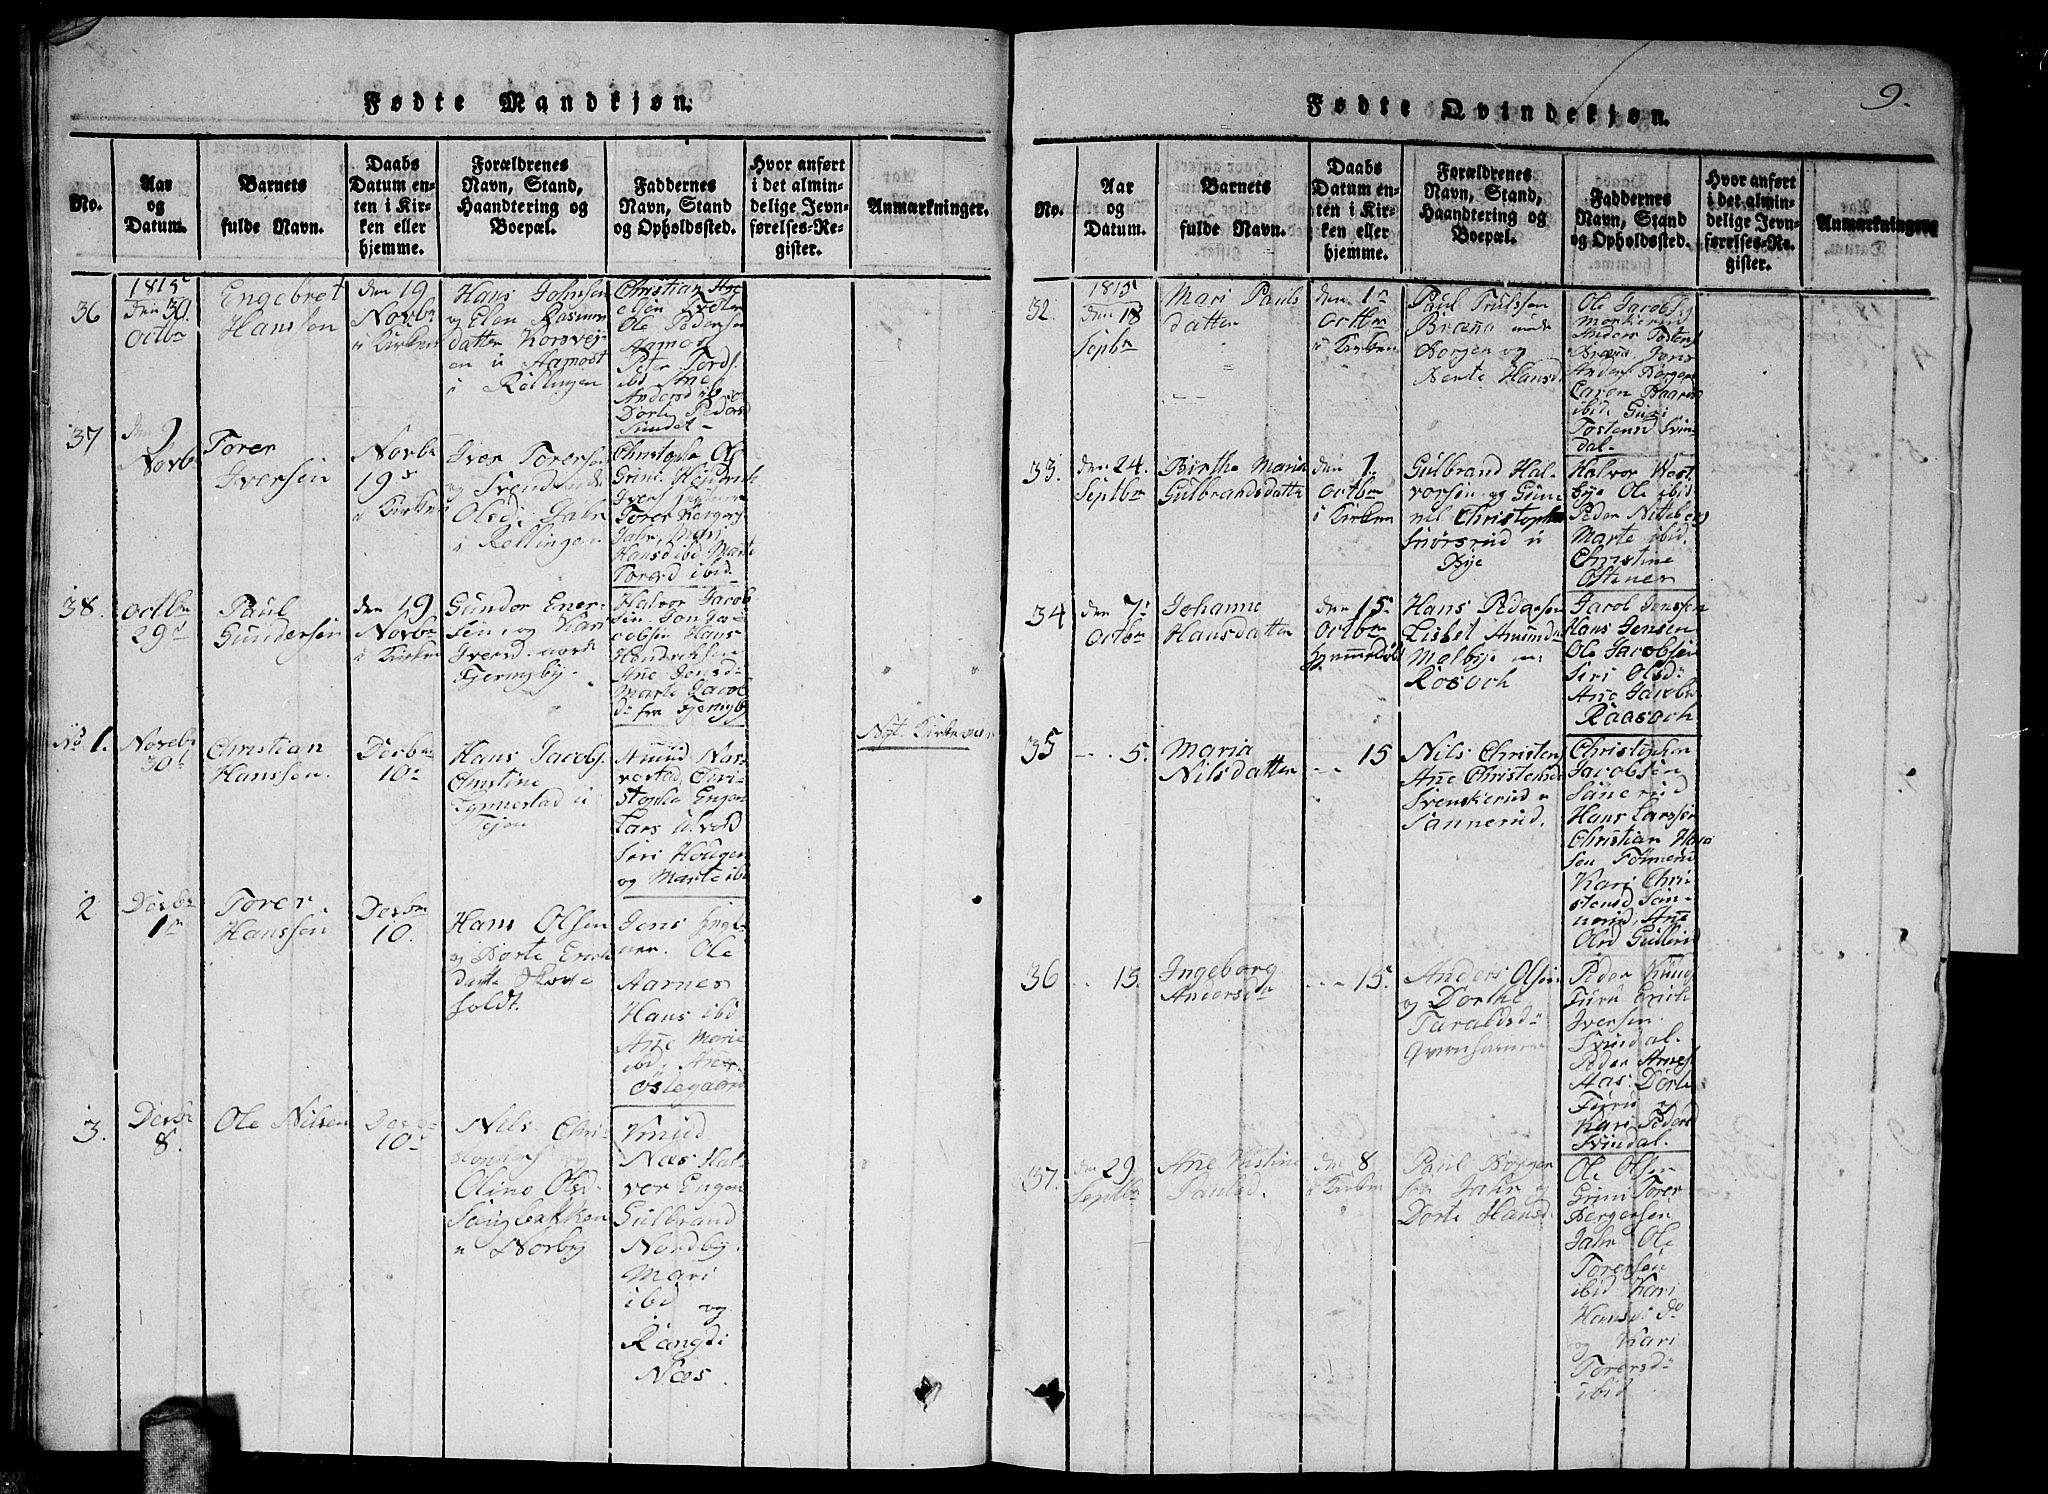 Fødte Mandkjøn.
No.
Aar
og
Datum.
Barnets
fulde Navn.
Daabs
Datum en-
ten i Kir-
ken eller
hjemme.
Forældrenes
Navn, Stand,
Haandtering og
Boepæl.
Faddernes
Navn, Stand
og Opholdssted.
Hvor anført
i det almin-
delige Jevn-
førelses-Re-
gister.
Anmarkninger.
36
1815
den 30
Octbr
Engebret
Hanssen
den 19
Novbr
i Kirken
Hans Johnsen
og Elen Rasmus
datter Korsvej
en i Aamost
i Rellingen
Christian
Ole Pedersen
Aamot
Peter Tords.
ibd Ane
Andersd ibd
Dorte Pedersd
Sundet
37
den 9
Novbr
Torer
Iversen
Novbr
19
i Kirken
Iver Torersen
og
Olsd. Jahr
i Rellingen
Christopher Ols
Grini Hendrich
Ivers
Torer Bergers
Jahr, Mari
Hansd ibd Marte
Torersd ibid
38.
Octbr
29
Paul
Gundersen
den 19
Novbr
i Kirken
Gunder Ener-
sen, og Kari
Iversd. nordr
Fjernyby.
Halvor Jacob
sen
cobsen Hans
Hendriksen
Ane Jensd
Marte Jacob
d fra Fjernyby
No 1.
Novbr
30
Christian
Hanssen.
Decbr
10
Hans Jacobs.
Christine
Tynnestad i
Tejen
Amund Nar-
vestad, Chri-
stopher Engen
Lars Ulvold
Siri Hougen
og Marte ibd
Nyt Kirkeaar
2
Decbr
1
Torer
Hanssen
Decbr
10.
Hans Olsen
og Dorte Erichs
datter
holdt.
Jens
Ole
Aarnes
Hans ibd
Ane Marie
ibd, Ane
Østegaard
3.
Decbr
8.
Ole Nilsen
Decbr
10
Nils Chri-
stophers og
Oline Olsd.
Haugbakken
u Norby
Knud
Næs Hal-
vor Engen
Gulbrand
Nordby.
Mari
ibd og
Rangdi
Næs.
9.
Fødte Qvindekjøn.
No.
Aar
og
Datum.
Barnets
fulde Navn.
Daabs
Datum en-
ten i Kir-
ken eller
hjemme.
Forældrenes
Navn, Stand,
Haandtering og
Boepæl.
Faddernes
Navn, Stand
og Opholdssted.
Hvor anført
i det almin-
delige Jevn-
førelses-Re-
gister.
Anmarkninger
32.
1815
den 18
Septbr
Mari Pauls
datter
den 1
Octbr
i Kirken
Paul Trulssen
Bræna under
Borgen og
Bente Hansd.
Ole Jacobs.
Morkerud
Anders Tostens
Bræna Jens
Anders. Borgen
Caren Haaversd
ibid. Guri
Tostensd Svin-
dal.
33.
den 24.
Septbr
Birthe Maria
Gulbrandsdatter
den 1.
Octbr
i Kirken
Gulbrand Hal-
vorsen og Gun-
nil Christopher
Snorsrud u
Bye
Halvor West
bye Ole ibid
Peder Nitteberg
Marte ibid.
Christine
Ostener
34
den 7
Octbr
Johanne
Hansdatter
den 15
Octbr
hjemmedøbt
Hans Pedersen
Lisbet Amunds
Malbye u
Rosoch
Jacob Jenssen
Hans Jensen
Ole Jacobsen
Siri Olsd
Ane Jacobs
Raasoch
35
- - 5.
Maria
Nilsdatter
- - 15
Nils Christens
Ane Christensd
Svenskerud u
Sannerud.
Christopher
Jacobsen
Sanerud
Hans Larssen
Christian Hans
sen Tømmerud
Kari Chri-
stensd San-
nerud, Ane
Olsd Gullerud
36
- - 15.
Ingeborg
Andersd
- - - 15.
Anders Olsen
og Dorthe
Taraldsd
Qvernhammer
Peder Knud
Furu Erich
Iversen
Svindal.
Peder Arnes
Aas. Dorte
Furu og
Kari Peders
Svindal.
37.
den 29
Septbr
Ane Kistine
Paulsd.
den 8
i Kirken
Paul Borger
sen Jahr og
Dorte Hansd.
Ole Olsen
Grini Torer
Bergersen
Jahr Ole
Torersen
ibid Kari
Hansd. do
og Kari
Torersd
ibid